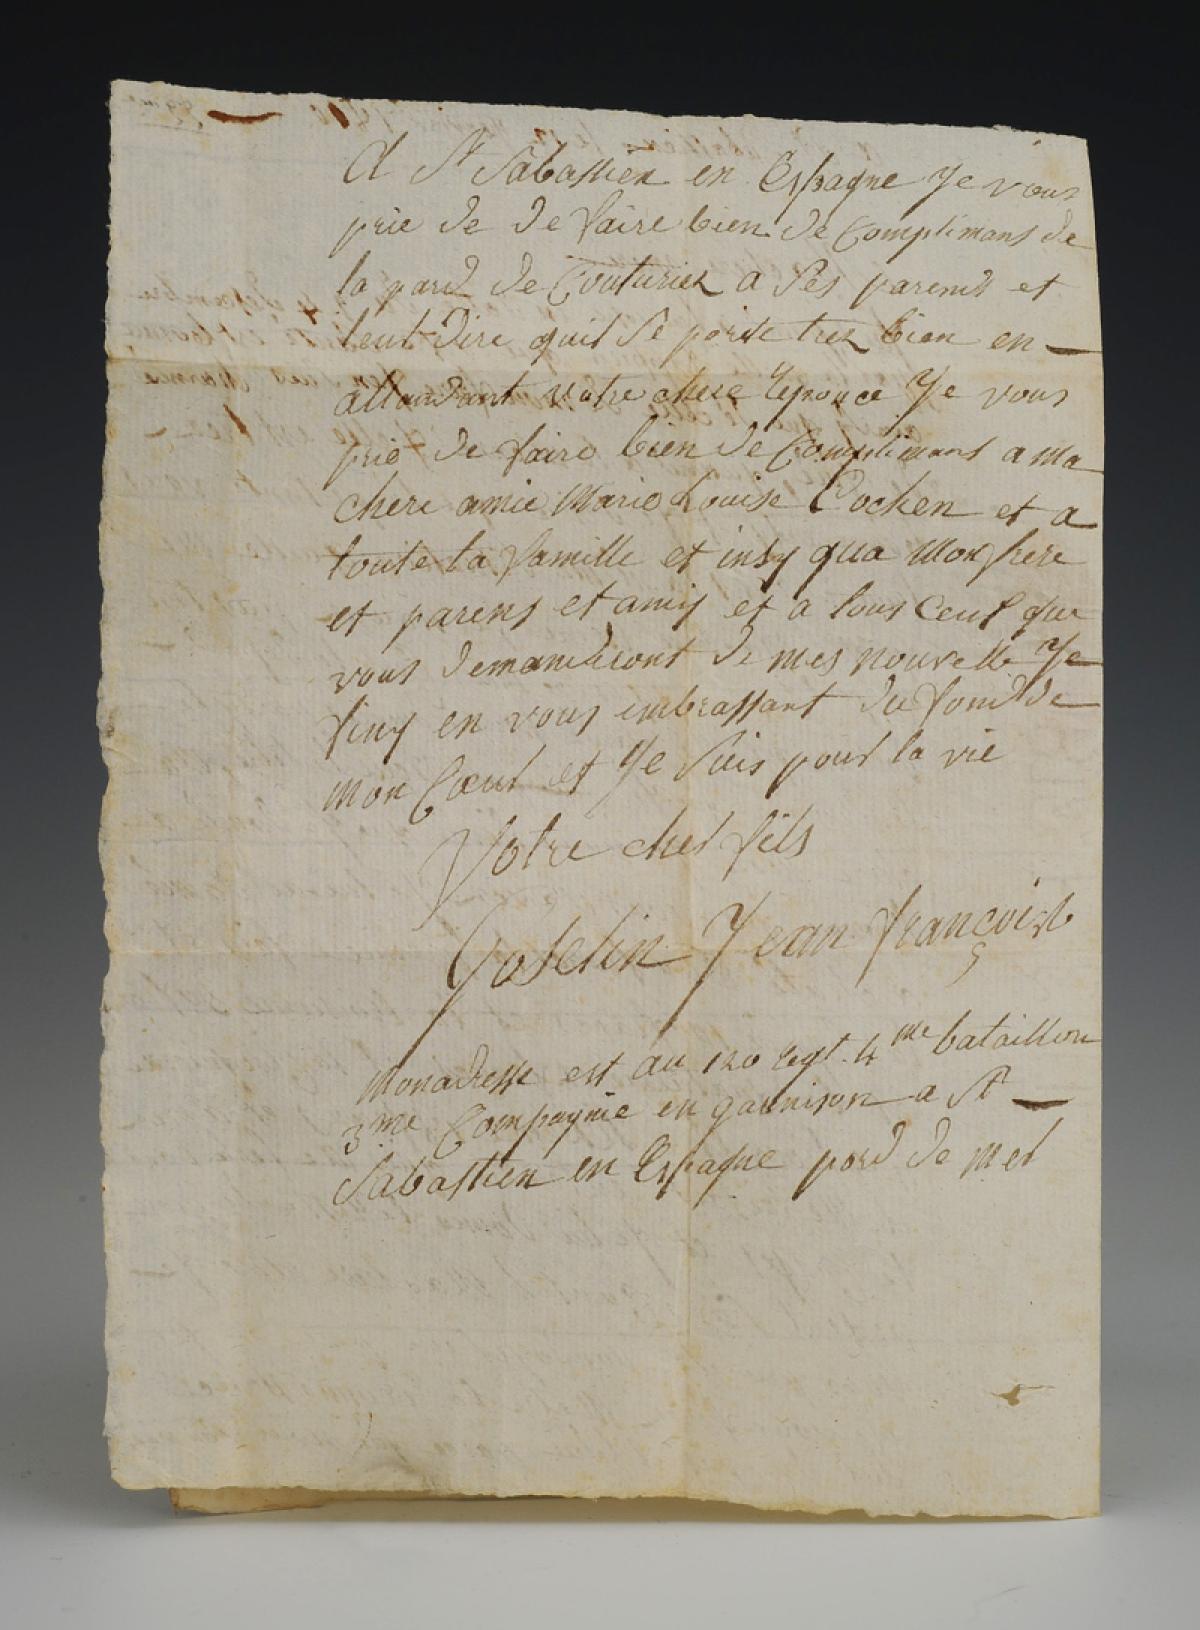 A St Sabastien en Espagne Je vous
prie de de faire bien de Complimans de
la pard de Couturier a Ses parends et
leur dire quil Se porte trez bien en
attandant votre chere Reponce Je vous
prie de faire bien de Complimans a ma
chere amie Marie Louise Cochen et a
toute la famille et insy qua Mon frere
et parens et amis et a tous Ceux que
vous demanderont de mes nouvelle Je
finy en vous embrassant du fond de
mon Cœur et Je Suis pour la vie
Votre cher fils
Joselin Jean françois
Mon adresse est au 120 regt. 4me bataillon
3me Compagnie en garnison a St
Sabastien en Espagne pord de mer